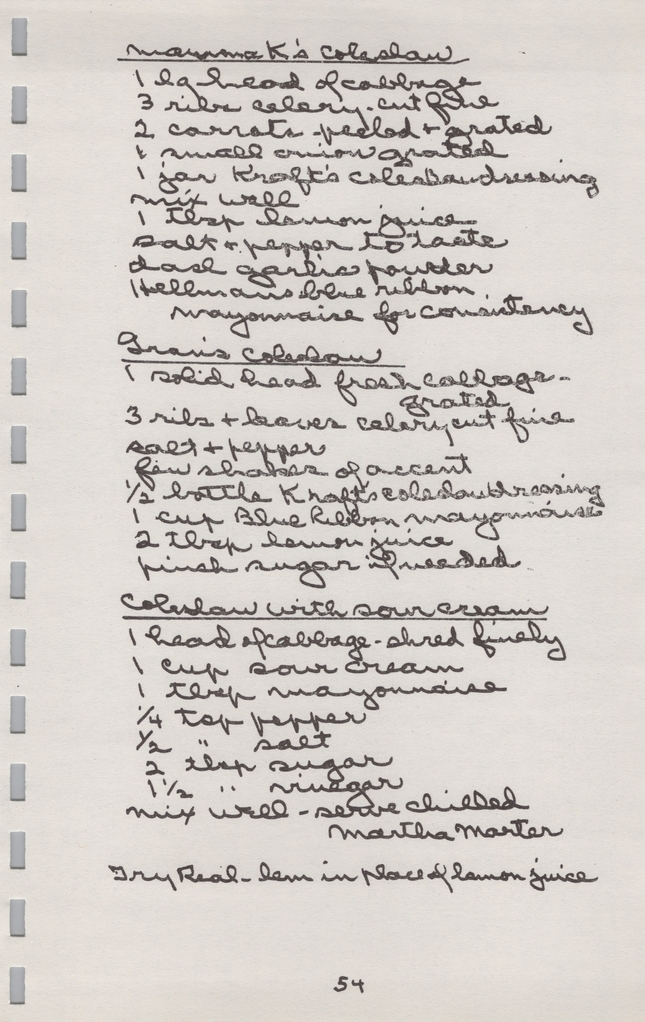 mamma K's coleslaw
1 lg head of cabbage
3 ribs celery - cut fine
2 carrots - peeled + grated
1 small onion grated
1 jar Kraft's coleslaw dressing
mix well
1 tbsp lemon juice
salt + pepper to taste
dash garlic powder
Hellmans blue ribbon
mayonnaise for consistency
Fran's coleslaw
1 solid head fresh cabbage -
grated
3 ribs + leaves celery cut fine
salt + pepper
few shakes of accent
1/2 bottle Kraft's coleslaw dressing
1 cup Blue Ribbon mayonnaise
2 tbsp lemon juice
pinch sugar if needed
Coleslaw with sour cream
1 head of cabbage - shred finely
1 cup sour cream
1 tbsp mayonnaise
1/4 tsp pepper
1/2 " salt
2 tbsp sugar
1 1/2 " vinegar
mix well - serve chilled
Martha Marter
Try Real-lem in place of lemon juice
54